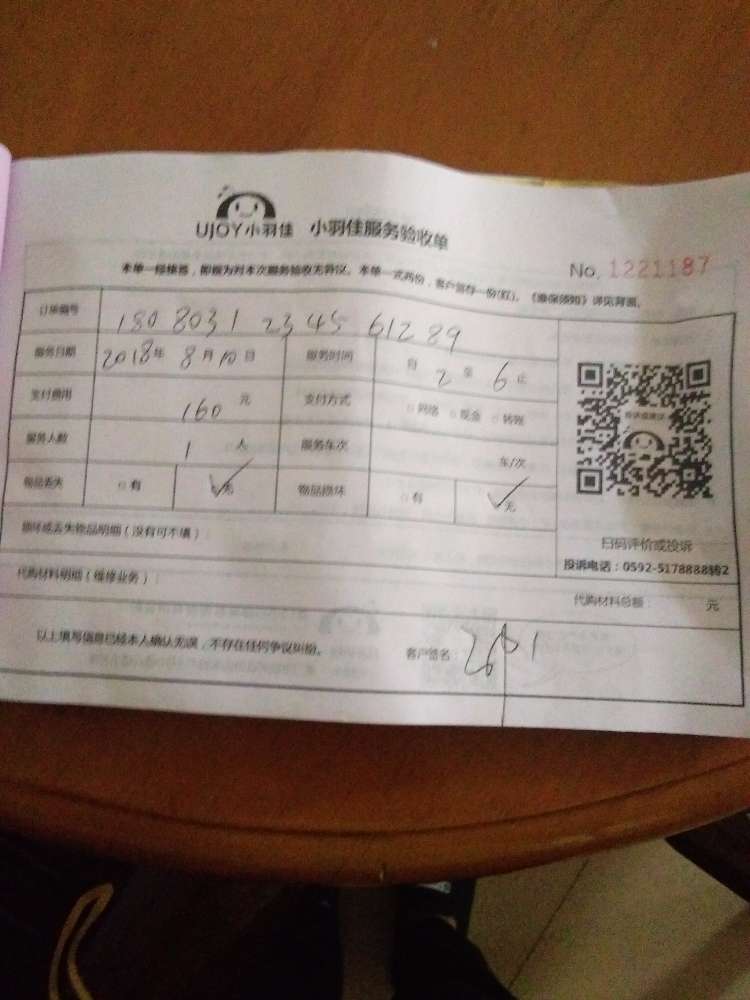 UJOY小羽佳 小羽佳服务验收单
No. 1221187
本单一经签署，即视为对本次服务验收无异议。本单一式两份，客户留存一份(红)。《维保须知》详见背面。
订单编号 180 8031 2345 61289
服务日期 2018年 8月10日 服务时间 自 2 至 6 止
支付费用 160 元 支付方式 □网络 □现金 □转账
服务人数 1 人 服务车次 车/次
物品丢失 □有 ✓无 物品损坏 □有 ✓无
损坏或丢失物品明细（没有可不填）：
扫码评价或投诉
投诉电话：0592-5178888转2
代购材料明细（维修业务）：
代购材料总额： 元
以上填写信息已经本人确认无误，不存在任何争议纠纷。 客户签名：